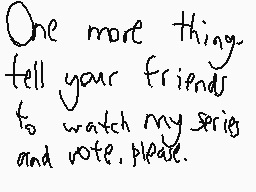 One more thing-
tell your friends
to watch my series
and vote, please.